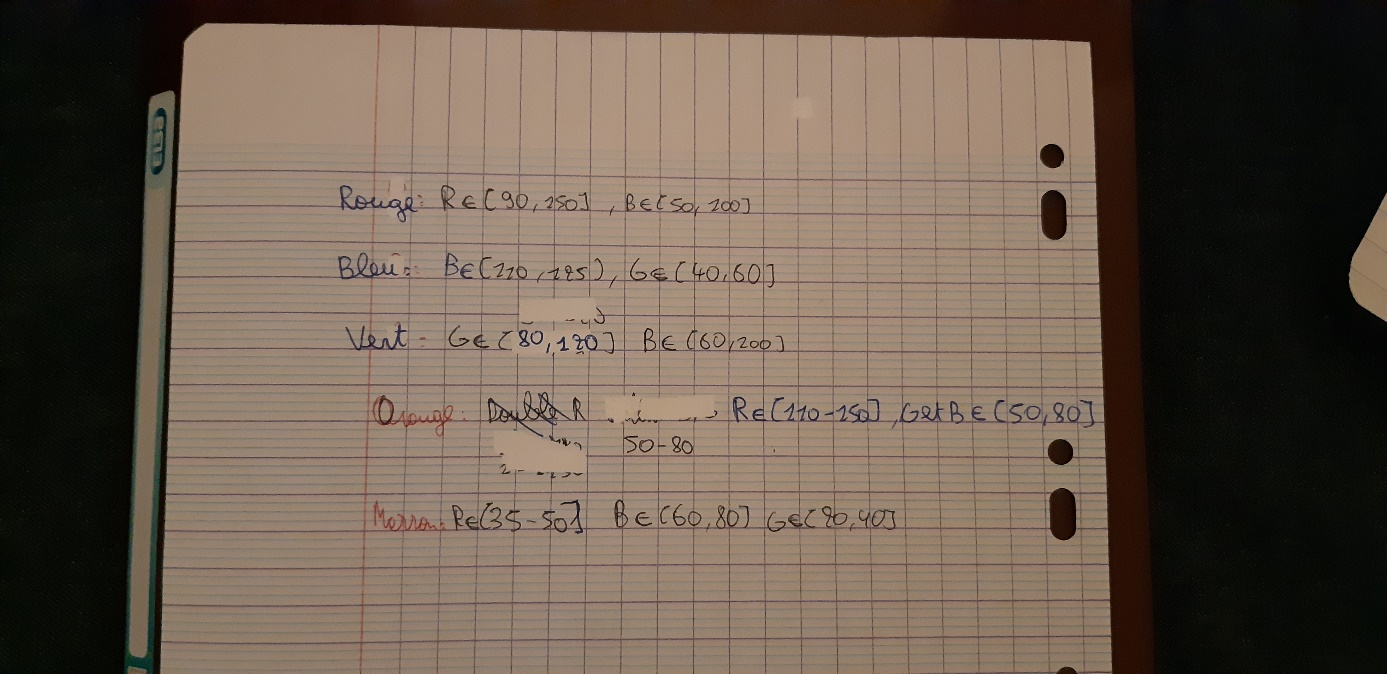 Rouge: R∈[90,150], B∈[50,100]
Bleu: B∈[110,195], G∈[40,60]
Vert: G∈[80,120] B∈[60,200]
Orange: Double R R∈[110-150], G et B∈[50,80]
50-80
Marron: R∈[35-50] B∈[60,80] G∈[20,40]